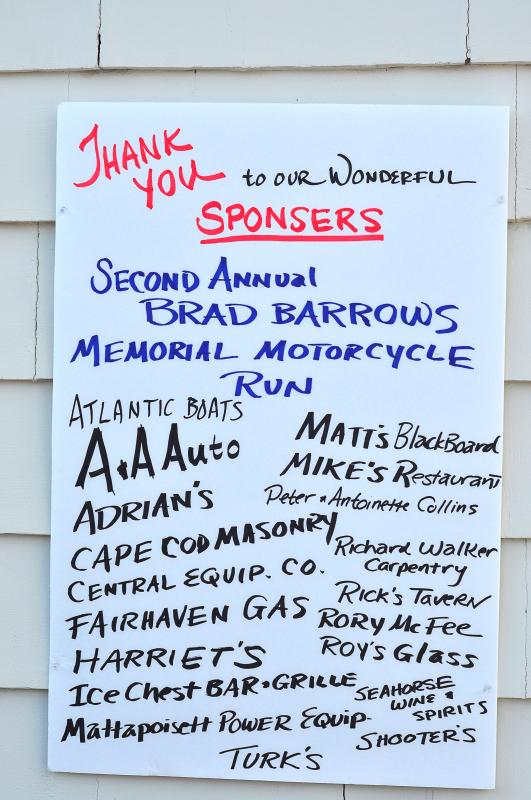 THANK YOU to our Wonderful
SPONSERS
SECOND ANNUAL
BRAD BARROWS
MEMORIAL MOTORCYCLE
RUN
ATLANTIC BOATS
A & A Auto
ADRIAN'S
CAPE COD MASONRY
CENTRAL EQUIP. CO.
FAIRHAVEN GAS
HARRIET'S
Ice Chest BAR • GRILLE
Mattapoisett POWER EQUIP.
TURK'S
MATT'S BlackBoard
MIKE'S Restaurant
Peter & Antoinette Collins
Richard Walker
Carpentry
RICK'S TAVERN
RORY McFEE
ROY'S Glass
SEAHORSE
WINE &
SPIRITS
SHOOTER'S